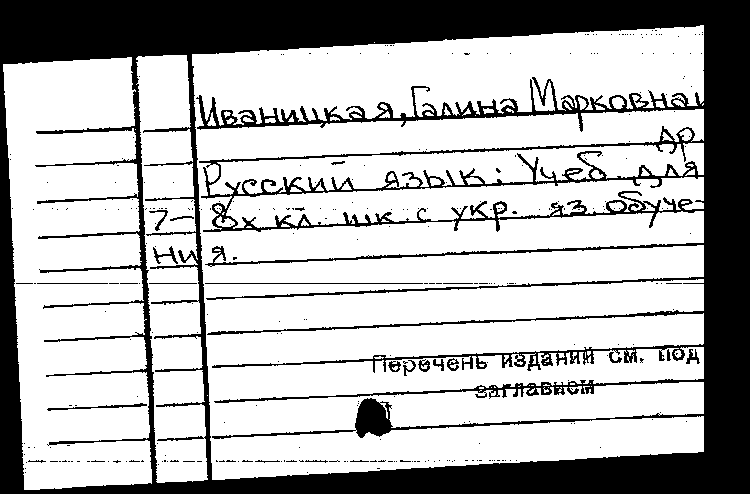 Иваницкая, Галина Марковна и
др.
Русский язык: Учеб. для
7-8х кл. шк. с укр. яз. обуче-
ния.
Перечень изданий см. под
заглавием